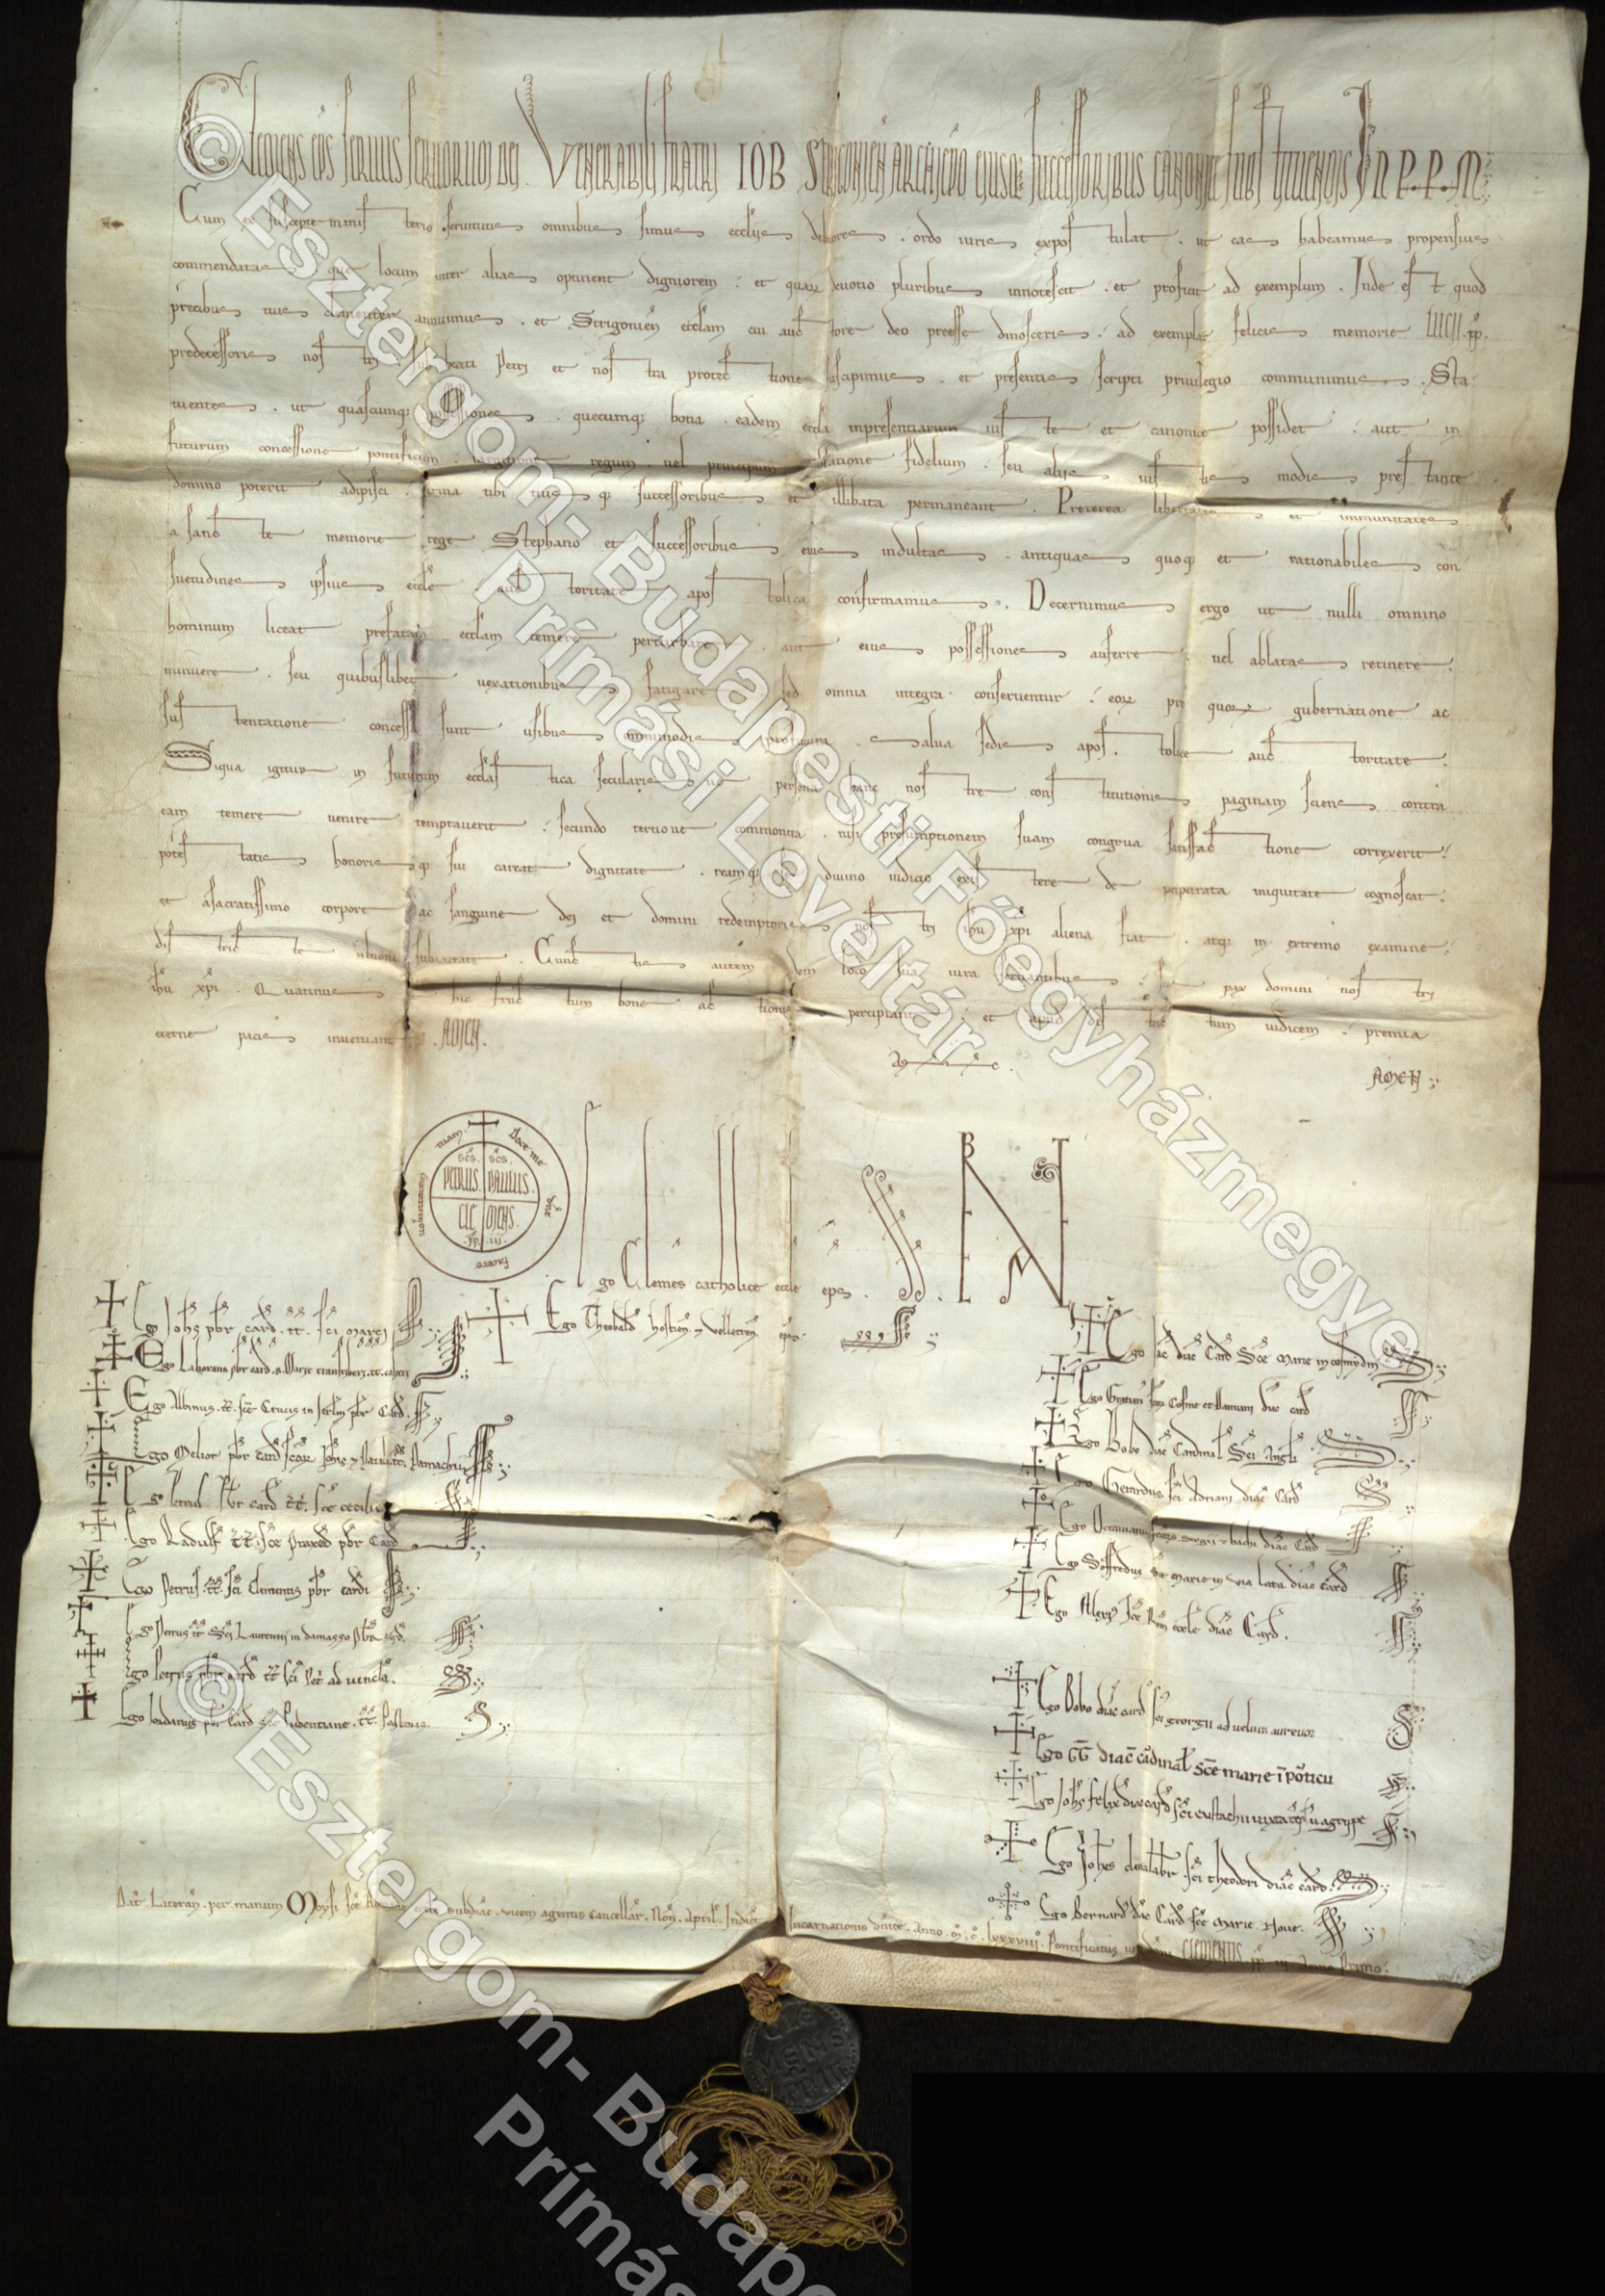 Clemens ep̄s seruus seruorum dei. Venerabili fratri IOB Strigonien̄ archiep̄o eiusq; successoribus canonice substituendis IN P. P. M.
Cum ex suscepte ministerio seruitutis omnibus simus eccl̄iis debitores. ordo iuris expostulat. ut eas habeamus propensius
commendatas que locum inter alias optinent digniorem. et quaꝝ deuotio pluribus innotescit. et proficit ad exemplum. Inde est quod
precibus tuis clementer annuimus. et Strigonien̄ eccl̄am cui auctore deo preesse dinosceris. ad exemplar felicis memorie LUCII pp̄.
predecessoris nostri sub beati Petri et nostra protectione suscipimus. et presentis scripti priuilegio communimus. Sta-
tuentes. ut quascunq; possessiones. quecunq; bona. eadem eccl̄a inpresentiarum iuste et canonice possidet. aut in
futurum concessione pontificum. largitione regum. uel principum. oblatione fidelium. seu aliis iustis modis prestante
domino poterit adipisci. firma tibi tuisq; successoribus et illibata permaneant. Preterea libertates et immunitates
a sancte memorie rege Stephano et successoribus eius indultas. antiquas quoq; et rationabiles con
suetudines ipsius eccl̄e auctoritate apostolica confirmamus. Decernimus ergo ut nulli omnino
hominum liceat prefatam eccl̄am temere perturbare. aut eius possessiones auferre. uel ablatas retinere.
minuere. seu quibuslibet uexationibus fatigare. sed omnia integra conseruentur. eoꝝ pro quoꝝ gubernatione ac
sustentatione concessa sunt usibus omnimodis profutura. salua sedis apostolice auctoritate.
Siqua igitur in futurum eccl̄astica secularisue persona hanc nostre constitutionis paginam sciens contra
eam temere uenire temptauerit. secundo tertioue commonita. nisi presumptionem suam congrua satisfactione correxerit.
potestatis honorisq; sui careat dignitate. reamq; se diuino iudicio existere de perpetrata iniquitate cognoscat.
et a sacratissimo corpore ac sanguine dei et domini redemptoris nostri ih̄u xp̄i aliena fiat. atq; in extremo examine
districte ultioni subiaceat. Cunctis autem eidem loco sua iura seruantibus. sit pax domini nostri
ih̄u xp̄i. Quatinus et hic fructum bone actionis percipiant. et apud districtum iudicem. premia
eterne pacis inueniant. AMEN.
AMEN
AMEN
Doce me dn̄e facere uoluntatem tuam
sc̄s. PETRUS. sc̄s. PAULUS.
CLEMENS. pp̄. iii.
Ego Clemēs catholice eccl̄e ep̄s.
Ego Theobald' hostien̄ & Velletren̄ ep̄s
Ego Joh̄s pb̄r card̄. tt̄. sc̄i marci
Ego Laborans pb̄r card̄. s. Marie transtiberi. tt̄. calixti
Ego Albinus. tt̄. sc̄e Crucis in Jerl̄m pb̄r Card̄.
Ego Melior pb̄r card̄ sc̄oꝝ Joh̄is & Pauli tt̄. Pamachii
Ego Petrus pb̄r card̄ tt̄. sc̄e cecilie
Ego Radulf' tt̄. sc̄e Praxed' pb̄r Card̄
Ego Petrus. tt̄. sc̄i Clementis pb̄r card̄i
Ego Petrus tt̄ Sc̄i Laurentii in damaso pb̄r card̄.
Ego Petrus pb̄r card̄ tt̄ sc̄i Petri ad uincula.
Ego bobo pb̄r Card̄ sc̄e Pudentiane. tt̄. Pastoris.
Ego diac̄ Card̄ Sc̄e Marie in cosmydin
Ego Gratian' sc̄oꝝ Cosme et Damiani diac̄ card̄
Ego Bobo diac̄ Cardinal' Sc̄i Angl̄i
Ego Gerardus sc̄i Adriani diac̄ Card̄
Ego Octauianus sc̄oꝝ Sergii & bachi diac̄ Card̄
Ego Soffredus sc̄e marie in via lata diac̄ card̄
Ego diac̄ Card̄.
Ego Bobo diac̄ card̄ sc̄i georgii ad uelum aureum
Ego GG diac̄ cardinal' sc̄e marie ī porticu
Ego Joh̄s felix diac̄ card̄ sc̄i eustachii iuxta templ̄ū agrippe
Ego Joh̄es sc̄i theodori diac̄ card̄.
Ego Bernard' diac̄ Card̄ sc̄e Marie Noue.
Dat̄. Lateran̄. per manum Moysi sc̄e Romane eccl̄. subdiac̄. vicem agentis cancellar̄. Non̄. April̄. Indict̄. Incarnationis dn̄ice. Anno. M̊. C̊. lxxxviii̊. Pontificatus CLEMENTIS. pp̄. iii. Anno Primo.